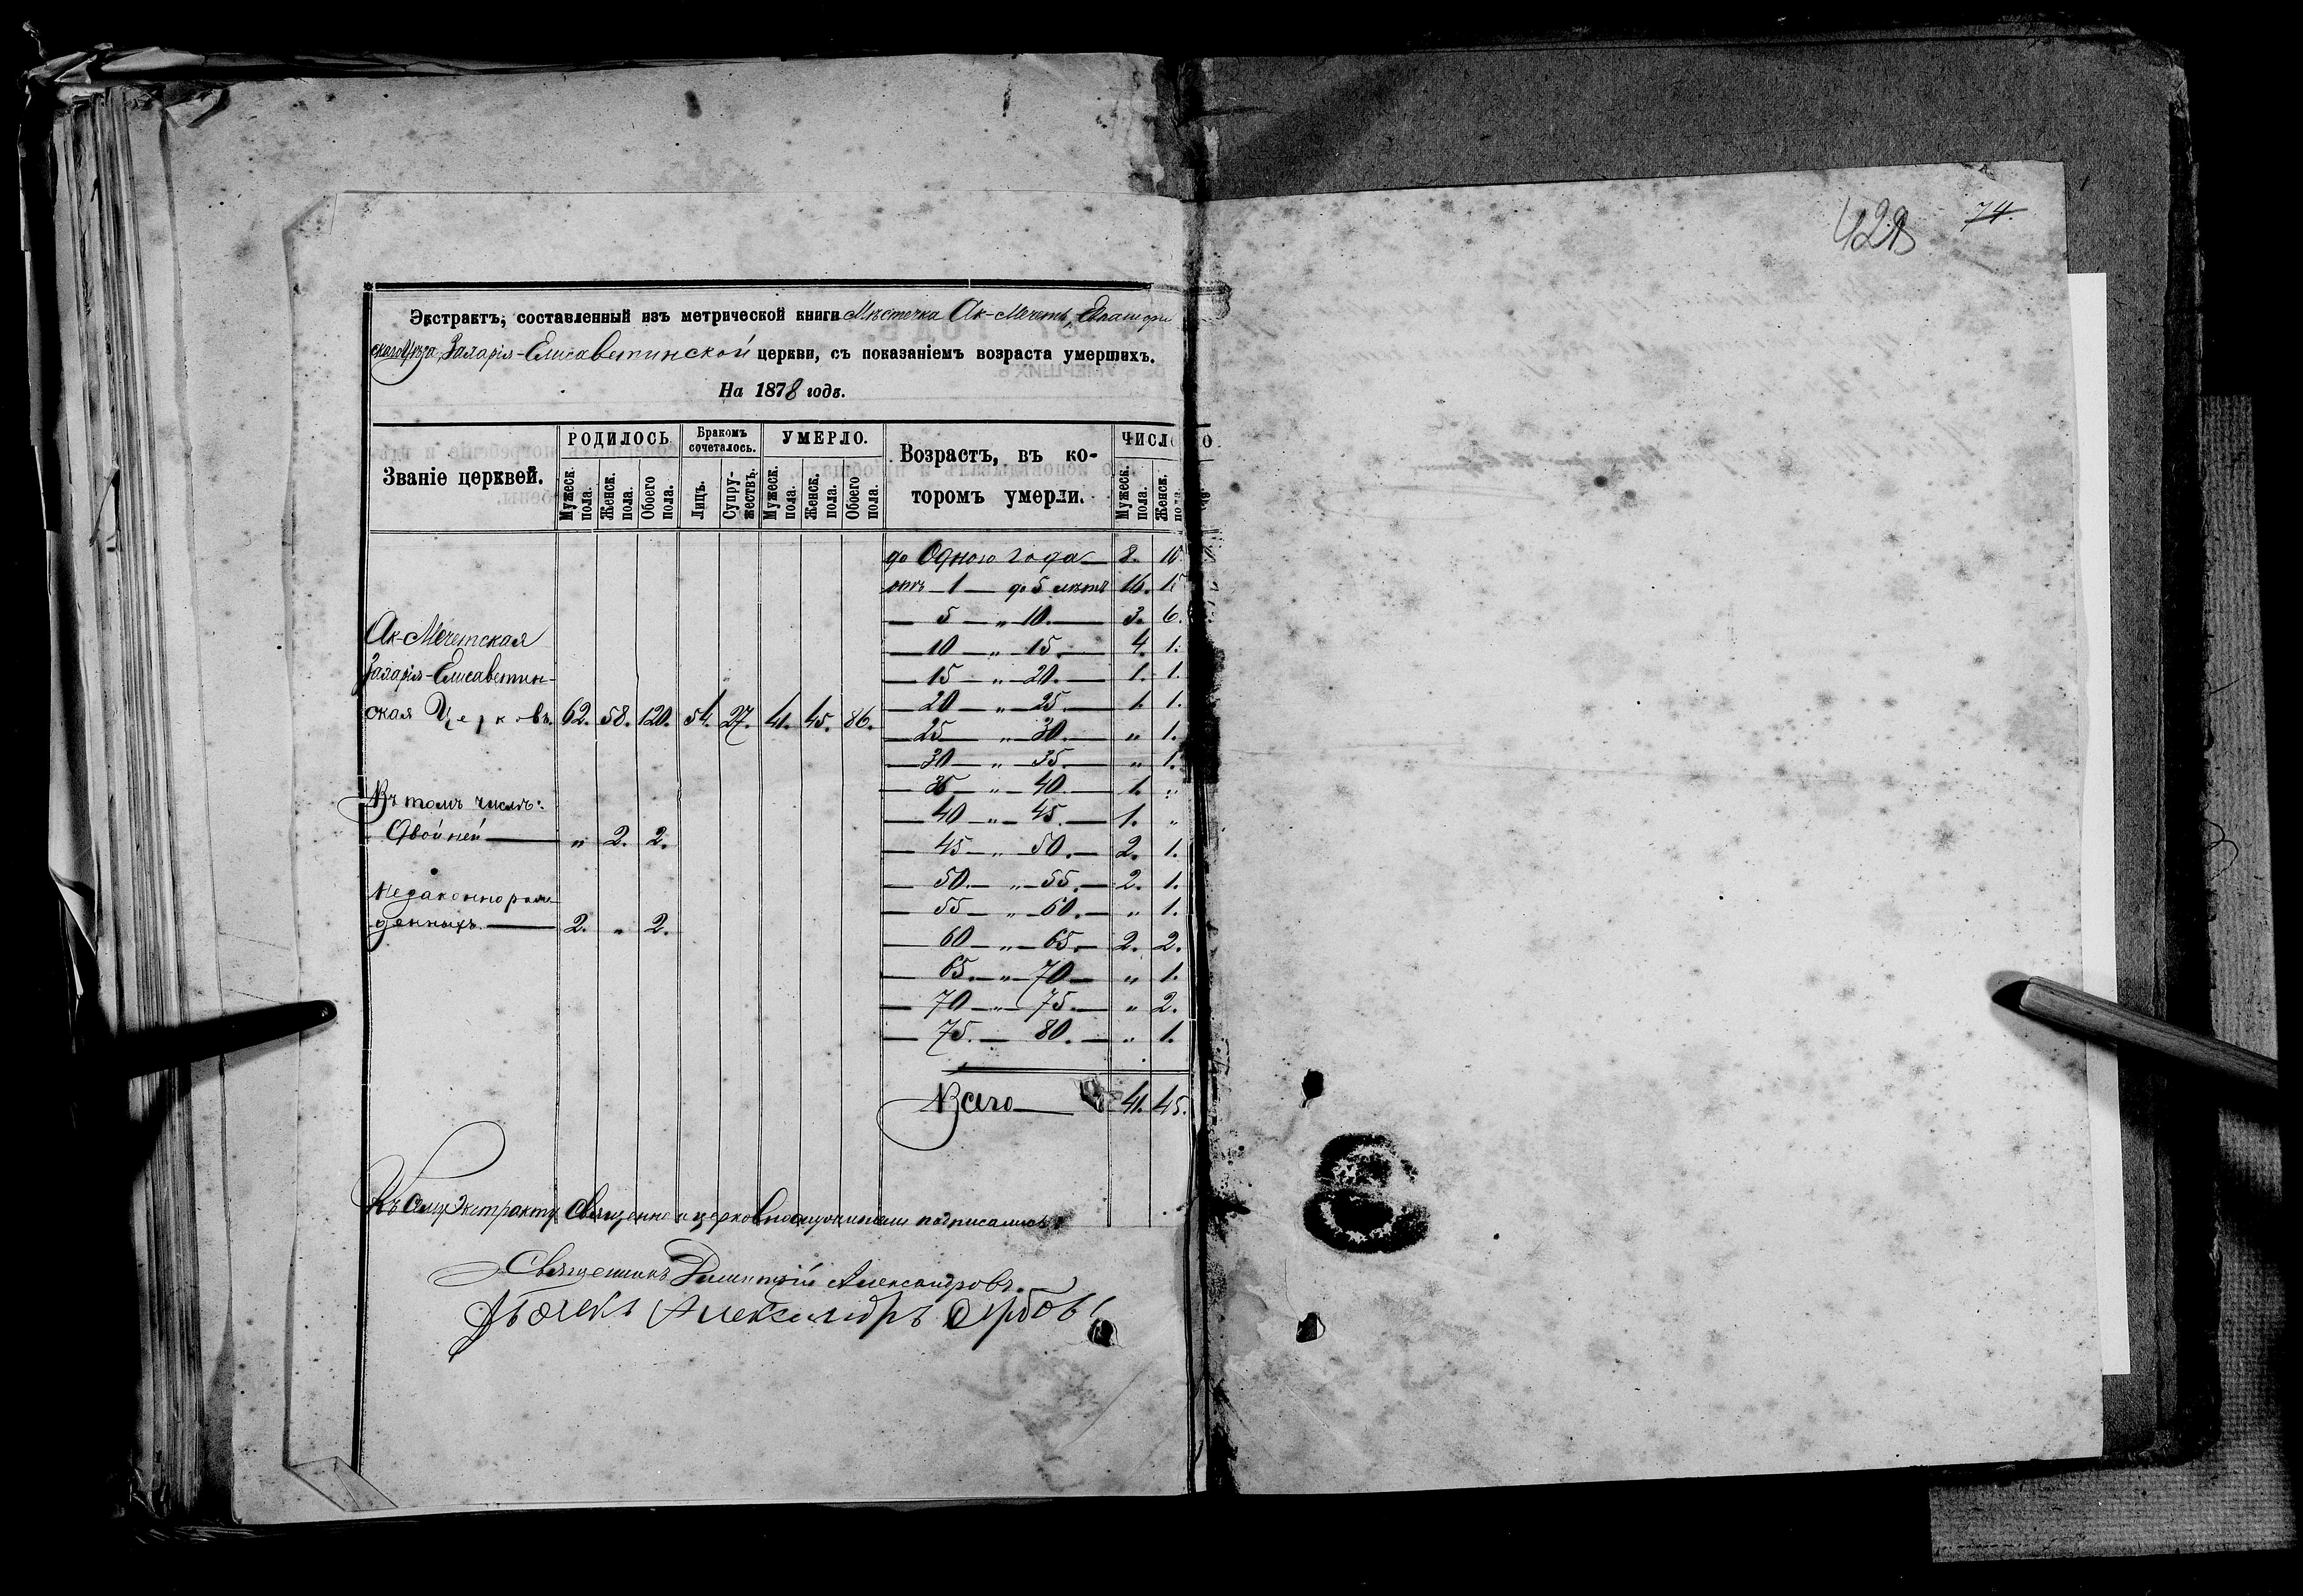 428 74.
Экстрактъ, составленный изъ метрической книги Мѣстечка Ак-Мечеть, Евпаторій
скаго Уѣзда, Захарія-Елисаветинской церкви, съ показаніемъ возраста умершихъ.
На 1878 годъ.
Званіе церквей. РОДИЛОСЬ Бракомъ сочеталось. УМЕРЛО. Возрастъ, въ ко-торомъ умерли. ЧИСЛО
Мужеск. пола. Женск. пола. Обоего пола. Лицъ. Супру-жествъ. Мужеск. пола. Женск. пола. Обоего пола. Мужеск. пола. Женск. пола.
до Одного года — 8. 10
отъ — 1 — до 5 лѣтъ 16. 15
— 5 — „ — 10. — 3. 6.
Ак-Мечетская
— 10 — „ — 15. — 4. 1.
Захарія-Елисаветин-
— 15 — „ — 20. — 1. 1.
ская Церковь. 62. 58. 120. 54. 27. 41. 45. 86.
— 20 — „ — 25. — 1. 1.
— 25 — „ — 30. — „ 1.
— 30 — „ — 35. — „ 1.
— 35 — „ — 40. — 1. „
Въ томъ числѣ:
— 40 — „ — 45. — 1. „
Двойней — „ 2. 2.
— 45 — „ 50. — 2. 1.
— 50. — „ — 55. — 2. 1.
Незаконнорож
— 55 — „ — 60. — „ 1.
денныхъ. — 2. „ 2.
— 60 — „ — 65. — 2. 2.
— 65. — „ — 70 — „ 1.
— 70 — „ — 75. — „ 2.
— 75. — 80. — „ 1.
Всего — 41. 45.
Къ сему Экстракту Священно и церковнослужители подписались:
Священникъ Димитрій Александровъ.
Александръ